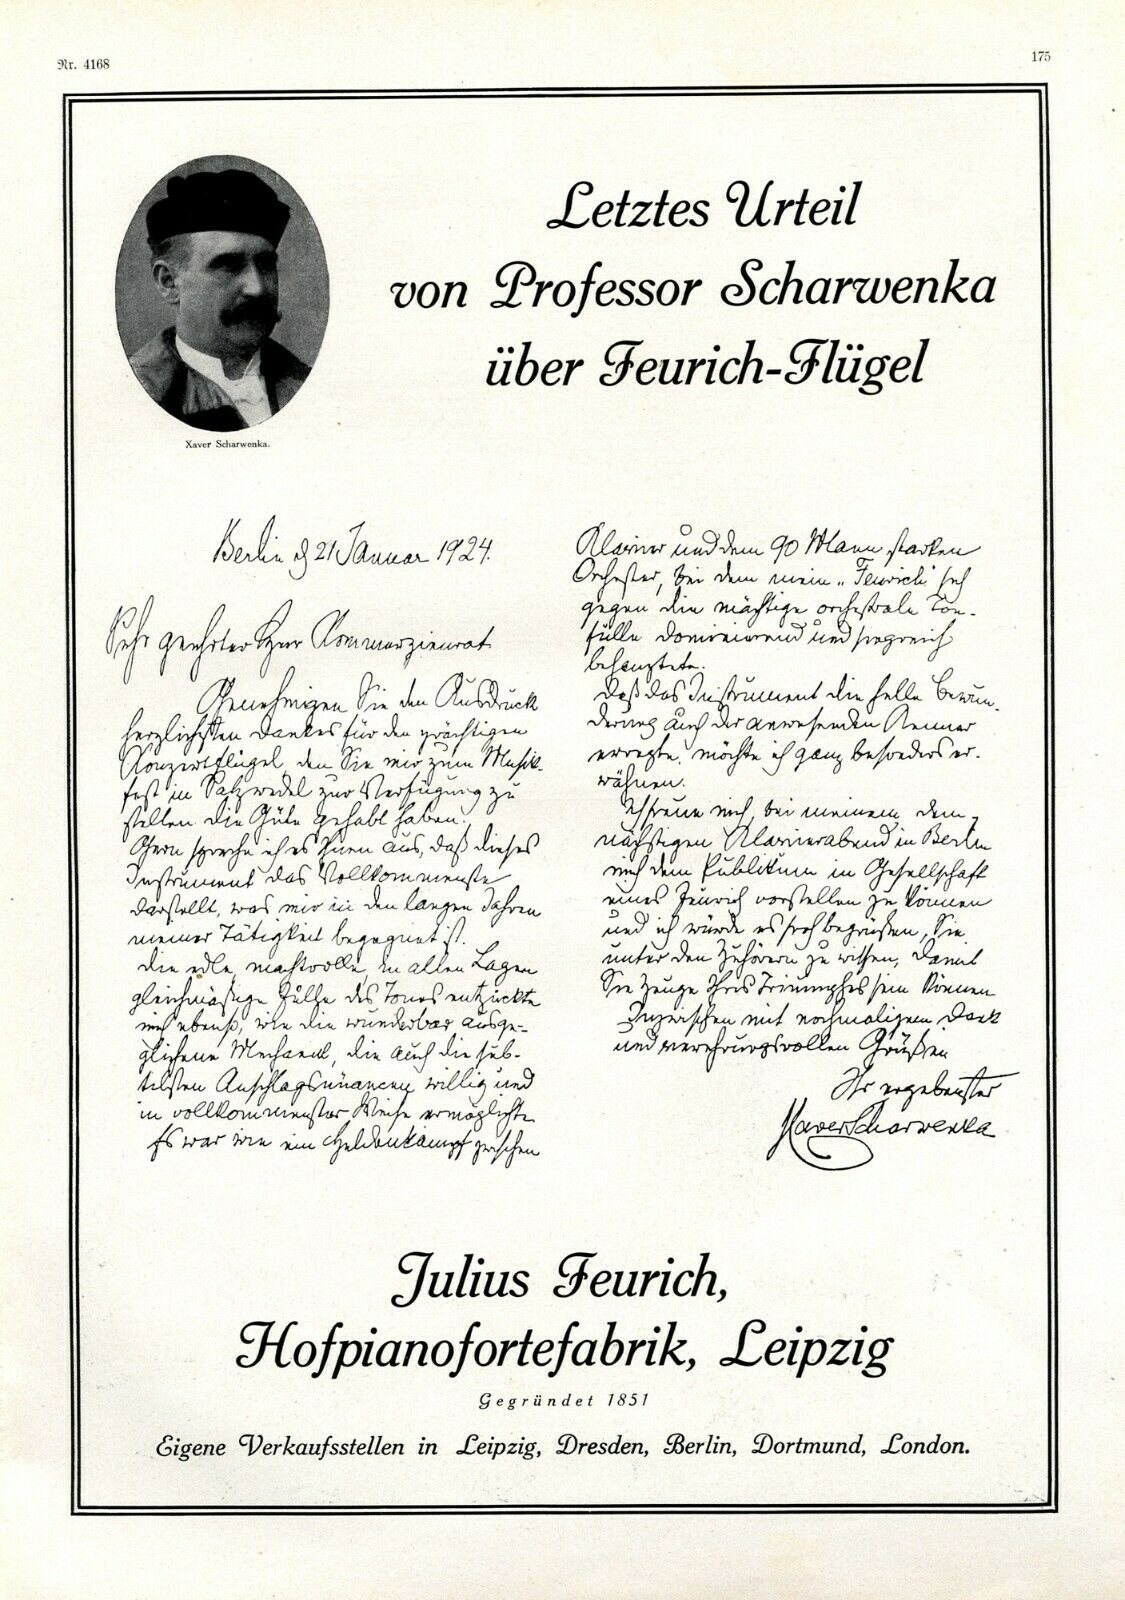 Nr. 4168
175
Letztes Urteil
von Professor Scharwenka
über Feurich-Flügel
Xaver Scharwenka.
Berlin d 21 Januar 1924.
Sehr geehrter Herr Kommerzienrat
Genehmigen Sie den Ausdruck
herzlichsten Dankes für den prächtigen
Konzertflügel, den Sie mir zum Musik-
fest in Salzwedel zur Verfügung zu
stellen die Güte gehabt haben.
Gern spreche ich es Ihnen aus, daß dieses
Instrument das Vollkommenste
darstellt, was mir in den langen Jahren
meiner Tätigkeit begegnet ist.
Die edle, machtvolle, in allen Lagen
gleichmäßige Fülle des Tones entzückte
mich ebenso, wie die wunderbar ausge-
glichene Mechanik, die auch die sub-
tilsten Anschlagsnüancen willig und
in vollkommenster Weise ermöglichte.
Es war wie ein Heldenkampf zwischen
Klavier und dem 90 Mann starken
Orchester, bei dem mein „Feurich" sich
gegen die mächtige orchestrale Ton-
fülle dominierend und siegreich
behauptete.
Daß das Instrument die helle Bewun-
derung auch der anwesenden Kenner
erregte, möchte ich ganz besonders er-
wähnen.
Ich freue mich, bei meinem dem-
nächstigen Klavierabend in Berlin
mich dem Publikum in Gesellschaft
eines Feurich vorstellen zu können
und ich würde es froh begrüßen, Sie
unter den Zuhörern zu wissen, damit
Sie Zeuge Ihres Triumphes sein können
Inzwischen mit nochmaligem Dank
und verehrungsvollen Grüßen
Ihr ergebenster
Xaver Scharwenka
Julius Feurich,
Hofpianofortefabrik, Leipzig
Gegründet 1851
Eigene Verkaufsstellen in Leipzig, Dresden, Berlin, Dortmund, London.